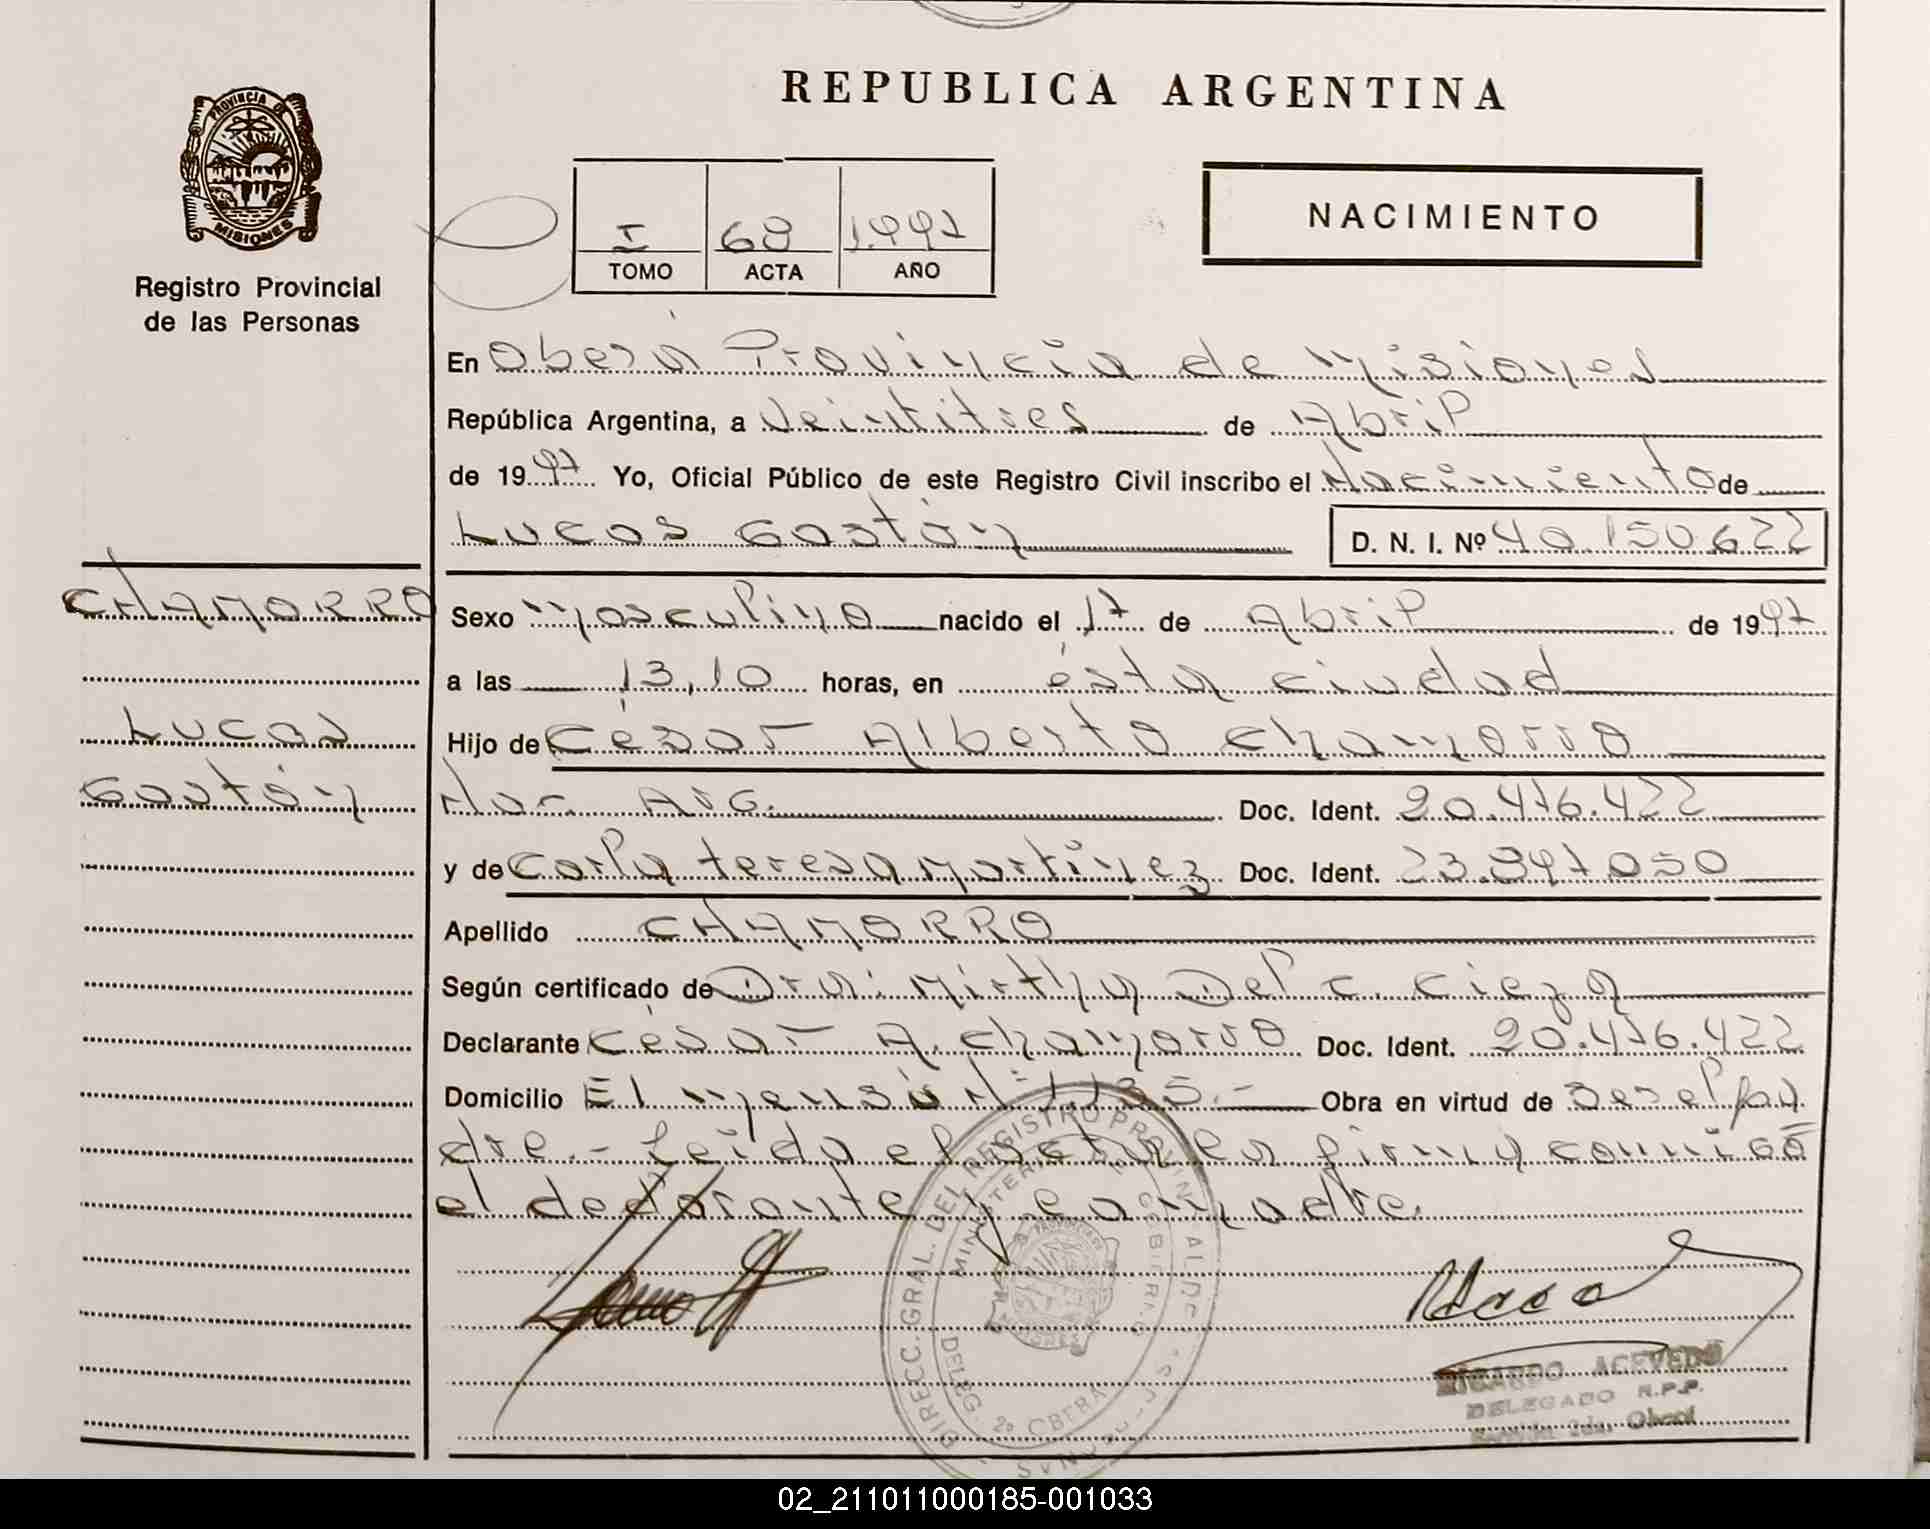 PROVINCIA DE
MISIONES
Registro Provincial
de las Personas
CHAMORRO
Lucas
Gastón
REPUBLICA ARGENTINA
I 68 1.997
TOMO ACTA AÑO
NACIMIENTO
En Oberá Provincia de Misiones
República Argentina, a Veintitres de Abril
de 1997 Yo, Oficial Público de este Registro Civil inscribo el Nacimiento de
Lucas Gastón D. N. I. Nº 40.150.622
Sexo masculino nacido el 17 de Abril de 1997
a las 13,10 horas, en ésta ciudad
Hijo de César Alberto Chamorro
Nac. Arg. Doc. Ident. 20.476.422
y de Carla teresa martinez Doc. Ident. 23.897.050
Apellido CHAMORRO
Según certificado de Dra: Mirtha Del C. Cieza
Declarante César A. Chamorro Doc. Ident. 20.476.422
Domicilio El mensú Nº 1135.- Obra en virtud de Ser el pa
dre.- Leída el acta la firma conmigo
el declarante y la madre.
DIRECC. GRAL. DEL REGISTRO PROVINCIAL DE LAS PERSONAS
MINISTERIO DE GOBIERNO
DELEG. 2ª OBERA
RICARDO ACEVEDO
DELEGADO R.P.P.
Sección 2da. Oberá
02_211011000185-001033